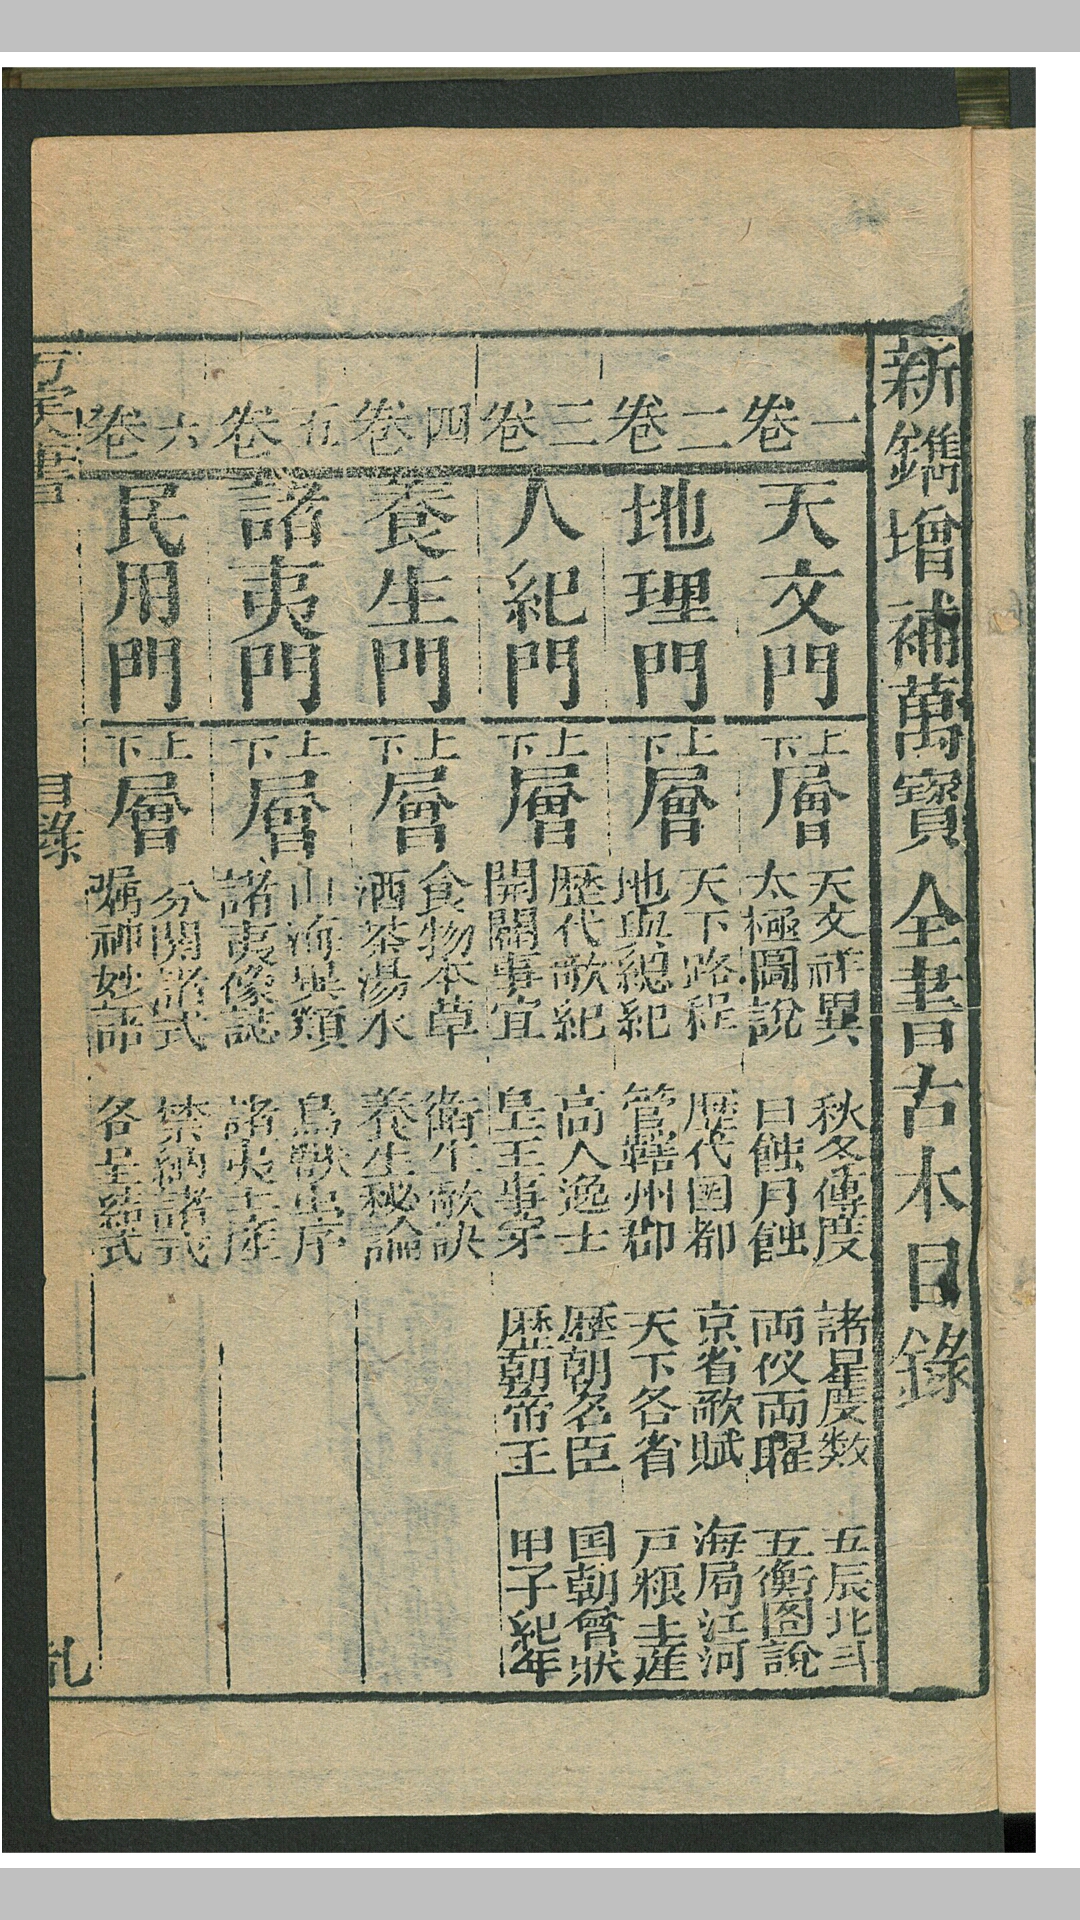 新鐫增補萬寳全書古本目錄
一卷 天文門 上層 天文祥異 秋冬傳度 諸星度数 五辰北斗
下層 太極圖說 日蝕月蝕 両仪両曜 五衡圖說
二卷 地理門 上層 天下路程 歷代国都 京省歌賦 海局江河
下層 地輿總紀 管轄州郡 天下各省 户粮土産
三卷 人紀門 上層 歷代歌紀 高人逸士 歷朝名臣 国朝曾狀
下層 開闢事宜 皇王事穿 歷朝帝王 甲子紀年
四卷 養生門 上層 食物本草 衛生歌訣
下層 酒茶湯水 養生秘論
五卷 諸夷門 上層 山海異類 鳥獸出序
下層 諸夷像誌 諸夷土産
六卷 民用門 上層 分関諸式 禁約諸式
下層 各呈結式
目錄 一